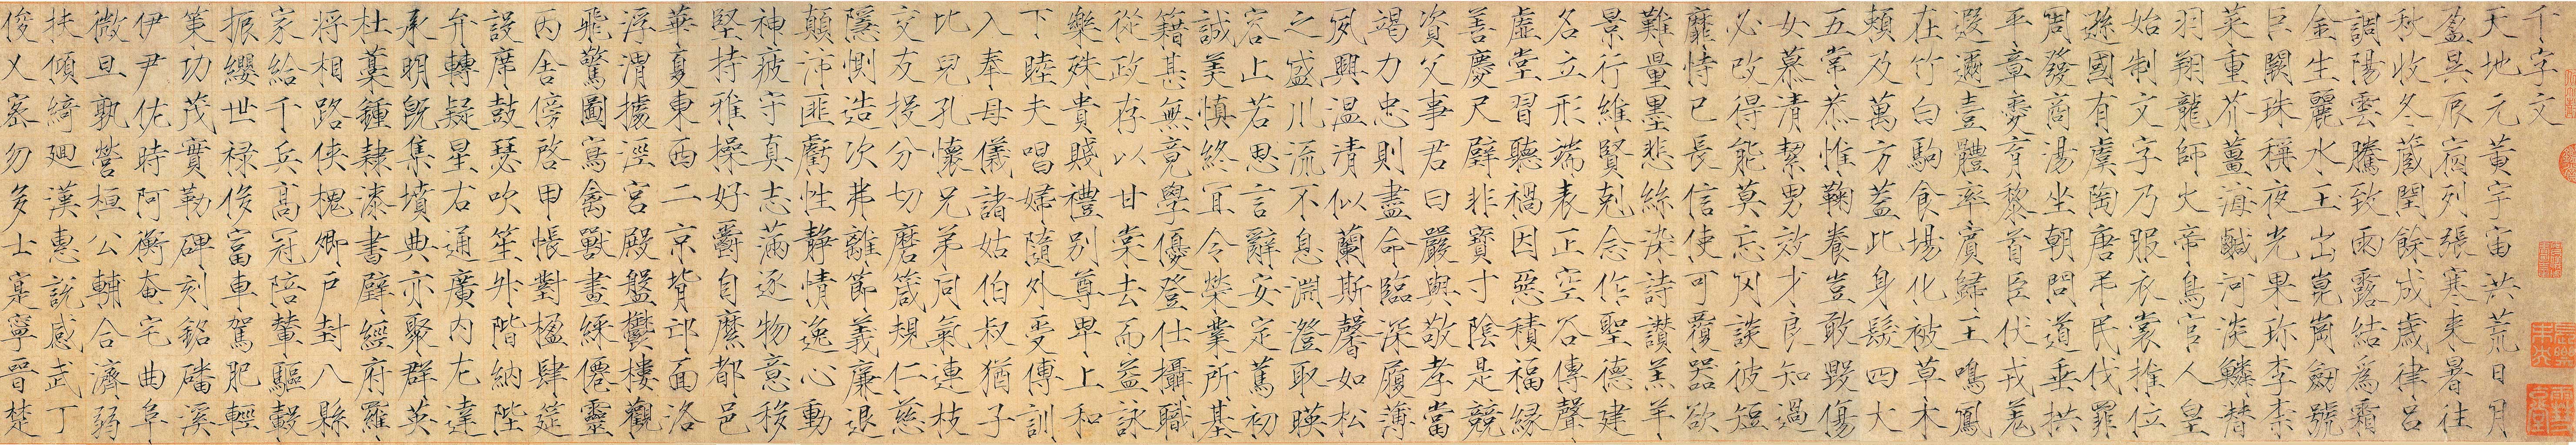 千字文
天地元黃宇宙洪荒日月
盈昃辰宿列張寒来暑往
秋收冬藏閏餘成歲律吕
調陽雲騰致雨露結為霜
金生麗水玉出崑崗劒號
巨闕珠稱夜光果珎李柰
菜重芥薑海鹹河淡鱗潛
羽翔龍師火帝鳥官人皇
始制文字乃服衣裳推位
遜國有虞陶唐弔民伐罪
周發商湯坐朝問道垂拱
平章愛育黎首臣伏戎羌
遐邇壹體率賓歸王鳴鳳
在竹白駒食場化被草木
賴及萬方蓋此身髮四大
五常恭惟鞠養豈敢毀傷
女慕清潔男效才良知過
必改得能莫忘罔談彼短
靡恃己長信使可覆器欲
難量墨悲絲染詩讚羔羊
景行維賢剋念作聖德建
名立形端表正空谷傳聲
虛堂習聽禍因惡積福緣
善慶尺璧非寶寸陰是競
資父事君曰嚴與敬孝當
竭力忠則盡命臨深履薄
夙興温清似蘭斯馨如松
之盛川流不息淵澄取暎
容止若思言辭安定篤初
誠美慎終宜令榮業所基
籍甚無竟學優登仕攝職
從政存以甘棠去而益詠
樂殊貴賤禮別尊卑上和
下睦夫唱婦隨外受傅訓
入奉母儀諸姑伯叔猶子
比兒孔懷兄弟同氣連枝
交友投分切磨箴規仁慈
隱惻造次弗離節義廉退
顛沛匪虧性静情逸心動
神疲守真志滿逐物意移
堅持雅操好爵自縻都邑
華夏東西二京背邙面洛
浮渭據涇宮殿盤鬱樓觀
飛驚圖寫禽獸畫綵僊靈
丙舍傍啓甲帳對楹肆筵
設席鼓瑟吹笙升階納陛
弁轉疑星右通廣内左達
承明既集墳典亦聚群英
杜藁鍾隸漆書壁經府羅
將相路俠槐卿戶封八縣
家給千兵高冠陪輦驅轂
振纓世祿侈富車駕肥輕
策功茂實勒碑刻銘磻溪
伊尹佐時阿衡奄宅曲阜
微旦孰營桓公輔合濟弱
扶傾綺迴漢惠說感武丁
俊乂密勿多士寔寧晉楚